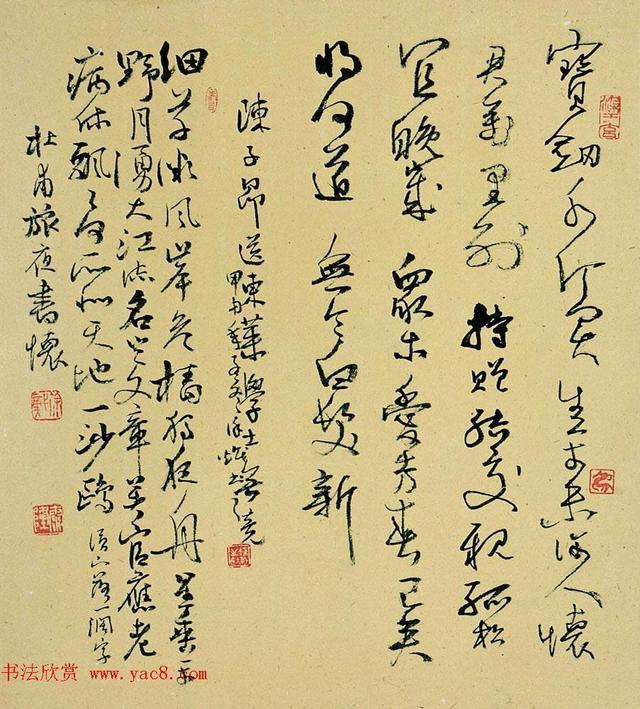 寶劍千金買生平未許人懷
君萬里別持贈結交親孤松
宜晚歲眾木愛芳春已矣
將何道無令白髮新
陳子昂送東萊學士無競
細草微風岸危檣獨夜舟星垂平
野月湧大江流名豈文章著官應老
病休飄飄何所似天地一沙鷗 落一闊字
杜甫旅夜書懷
书法欣赏 www.yac8.com